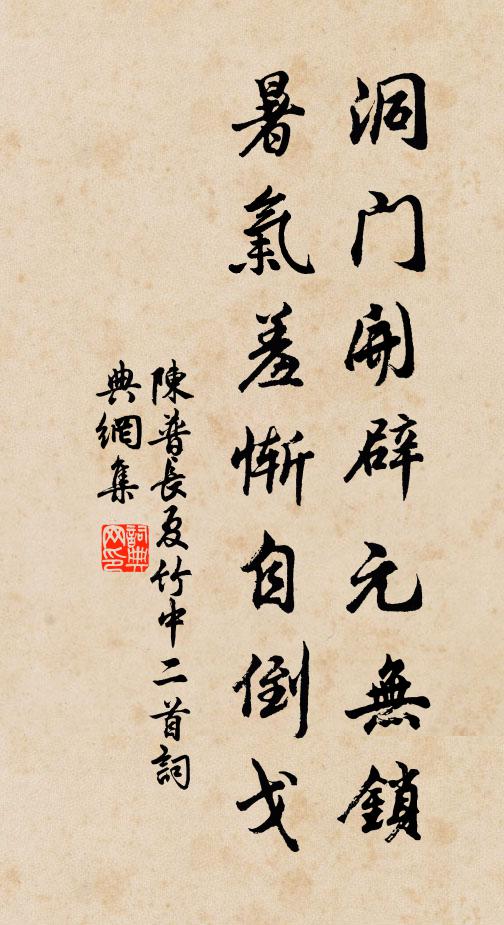 洞门開辟元無鎖
暑氣羞慚自倒戈
陳普長夏竹中二首詞
典網集
詞典
网印